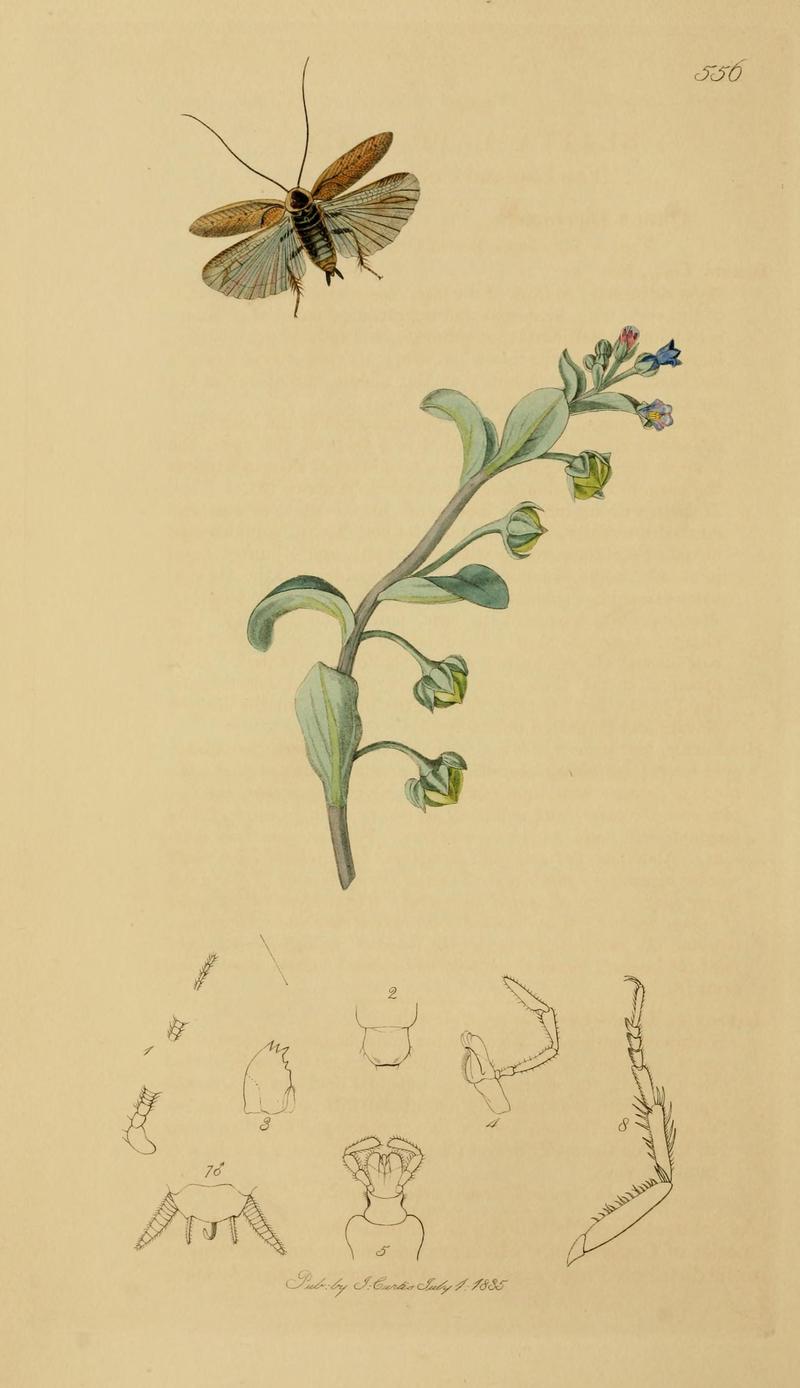 556
2
1
3
4
8
7♂
5
Pub: by J: Curtis July 1: 1835